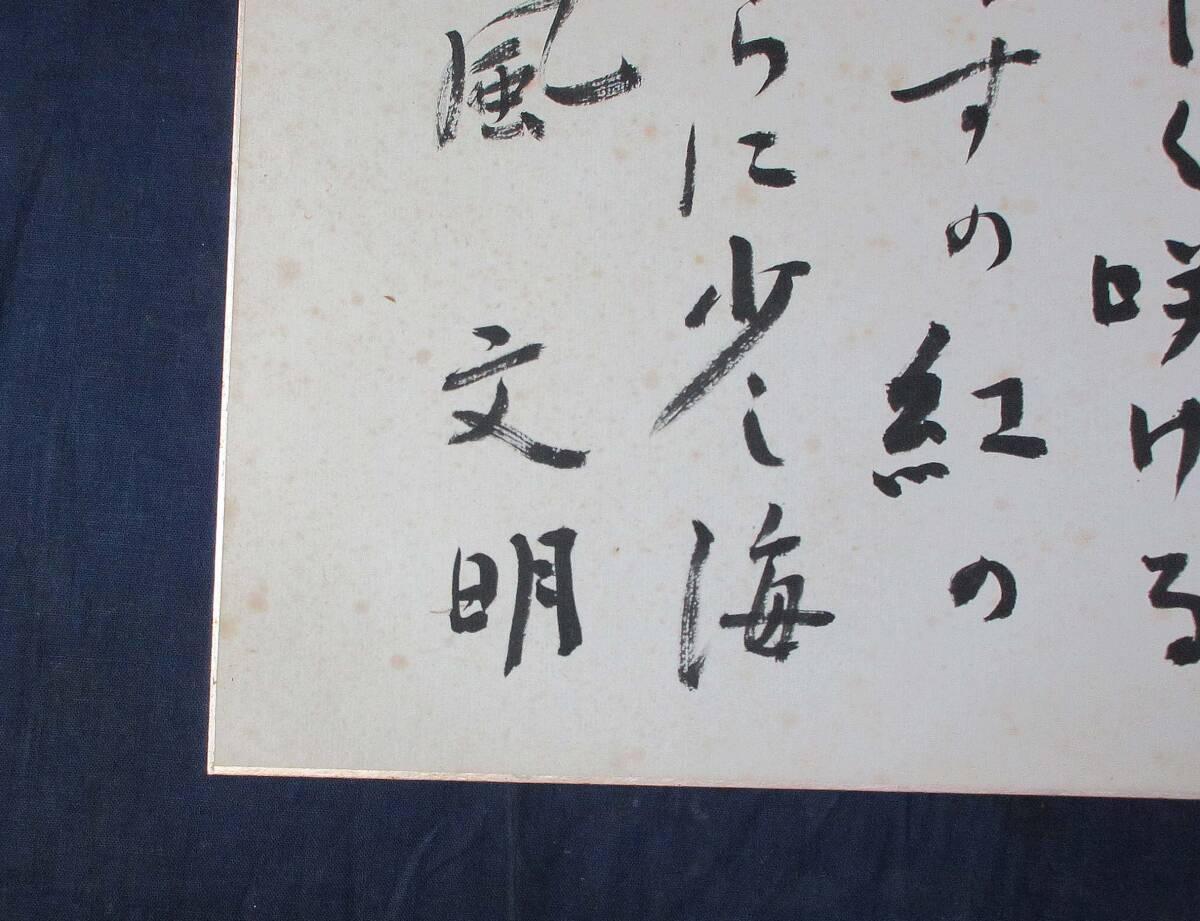 く咲ける
すの紅の
らに少し海
風 文明